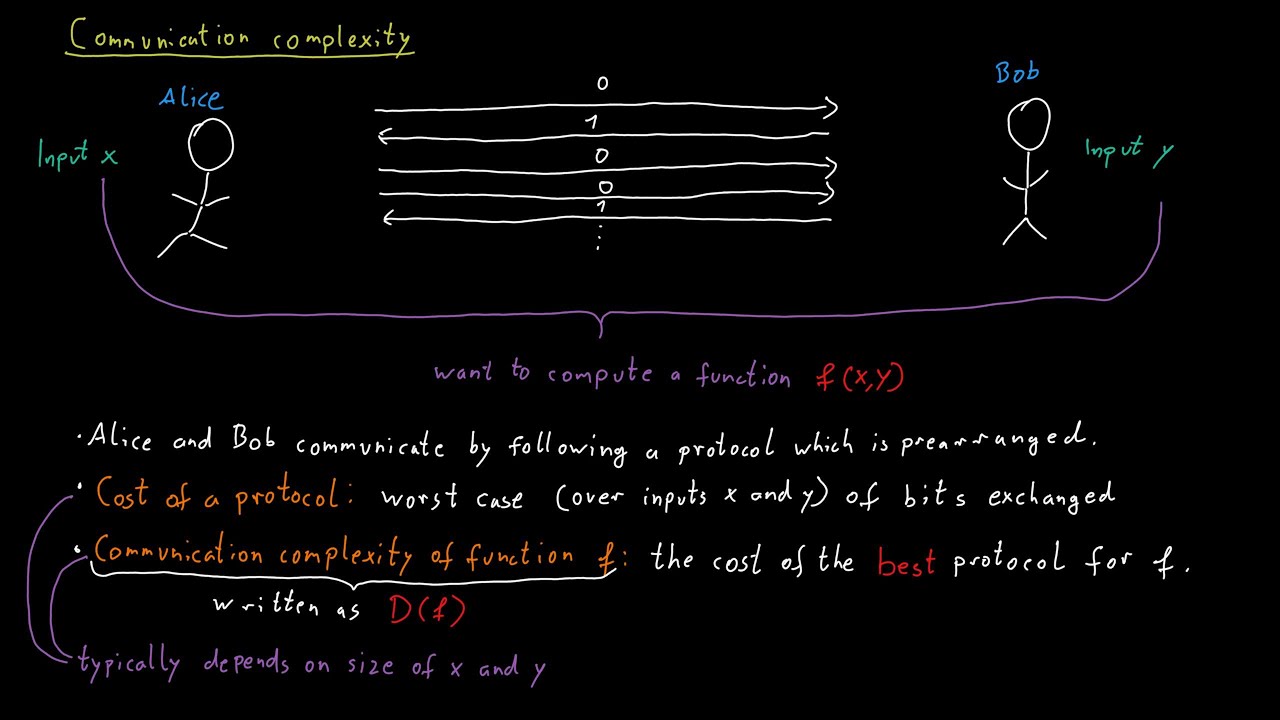 Communication complexity
Alice
Bob
Input x
Input y
0
1
0
0
1
want to compute a function f(x,y)
· Alice and Bob communicate by following a protocol which is prearranged.
· Cost of a protocol: worst case (over inputs x and y) of bits exchanged
· Communication complexity of function f: the cost of the best protocol for f.
written as D(f)
typically depends on size of x and y